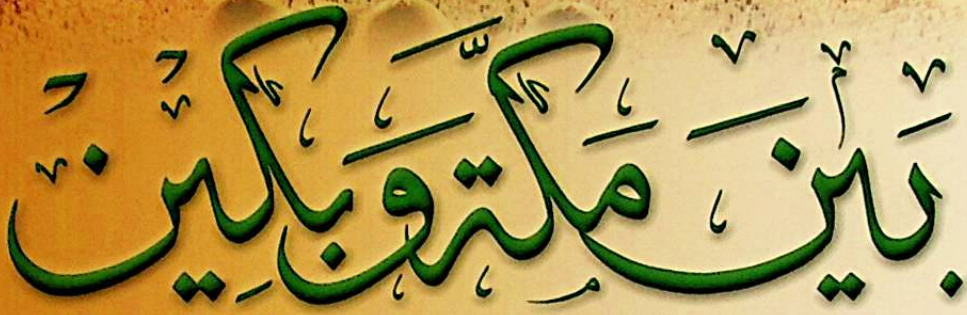 بَيْنَ مَكَّةَ وَبَكِين